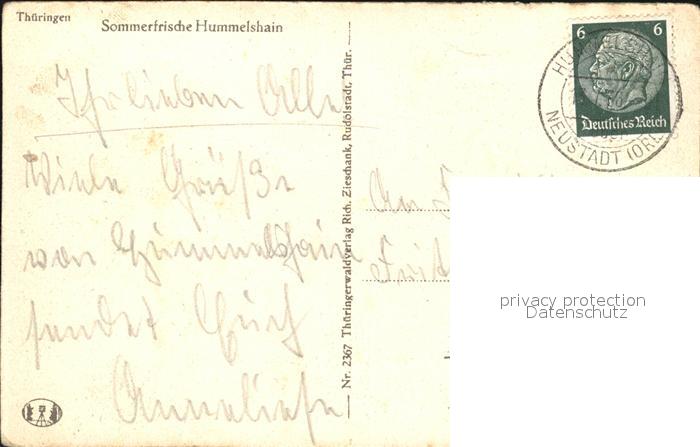 Thüringen
Sommerfrische Hummelshain
Ihr lieben Alle
Viele Grüße
von Hummelshain
sendet Euch
Anneliese
Nr. 2367 Thüringerwaldverlag Rich. Zieschank, Rudolstadt, Thür.
6 6
Deutsches Reich
NEUSTADT (ORLA
An
privacy protection
Datenschutz